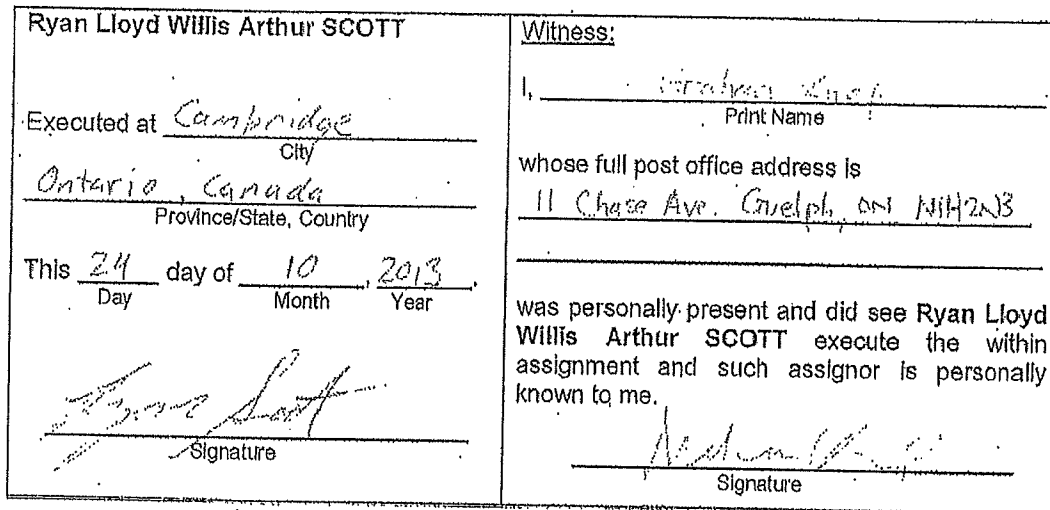 Ryan Lloyd Willis Arthur SCOTT
Executed at Cambridge
City
Ontario, Canada
Province/State, Country
This 24 day of 10, 2013,
Day Month Year
Scott
Signature
Witness:
I,
Print Name
whose full post office address is
11 Chase Ave. Guelph, ON N1H2N3
was personally present and did see Ryan Lloyd
Willis Arthur SCOTT execute the within
assignment and such assignor is personally
known to me.
Signature